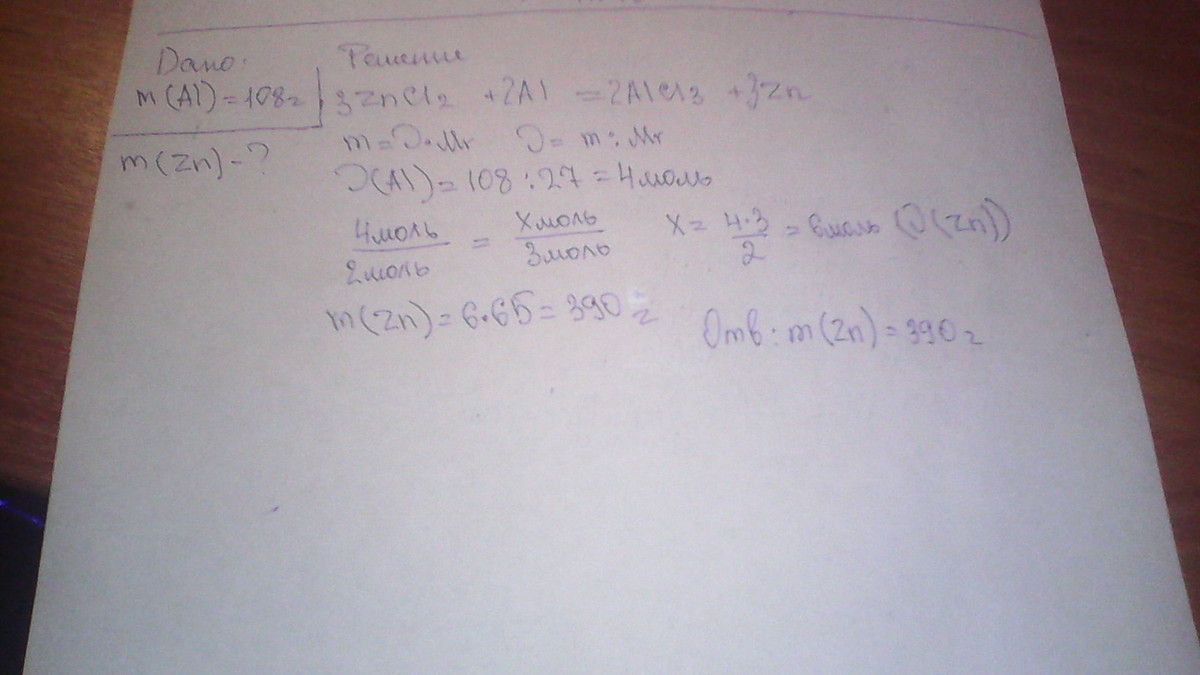 Дано: Решение
m(Al)=108г 3ZnCl2 +2Al =2AlCl3 +3Zn
m(Zn)-? m=ν·Mr ν=m:Mr
ν(Al)=108:27=4моль
4моль/2моль = xмоль/3моль x=4·3/2=6моль (ν(Zn))
m(Zn)=6·65=390г
Отв: m(Zn)=390г